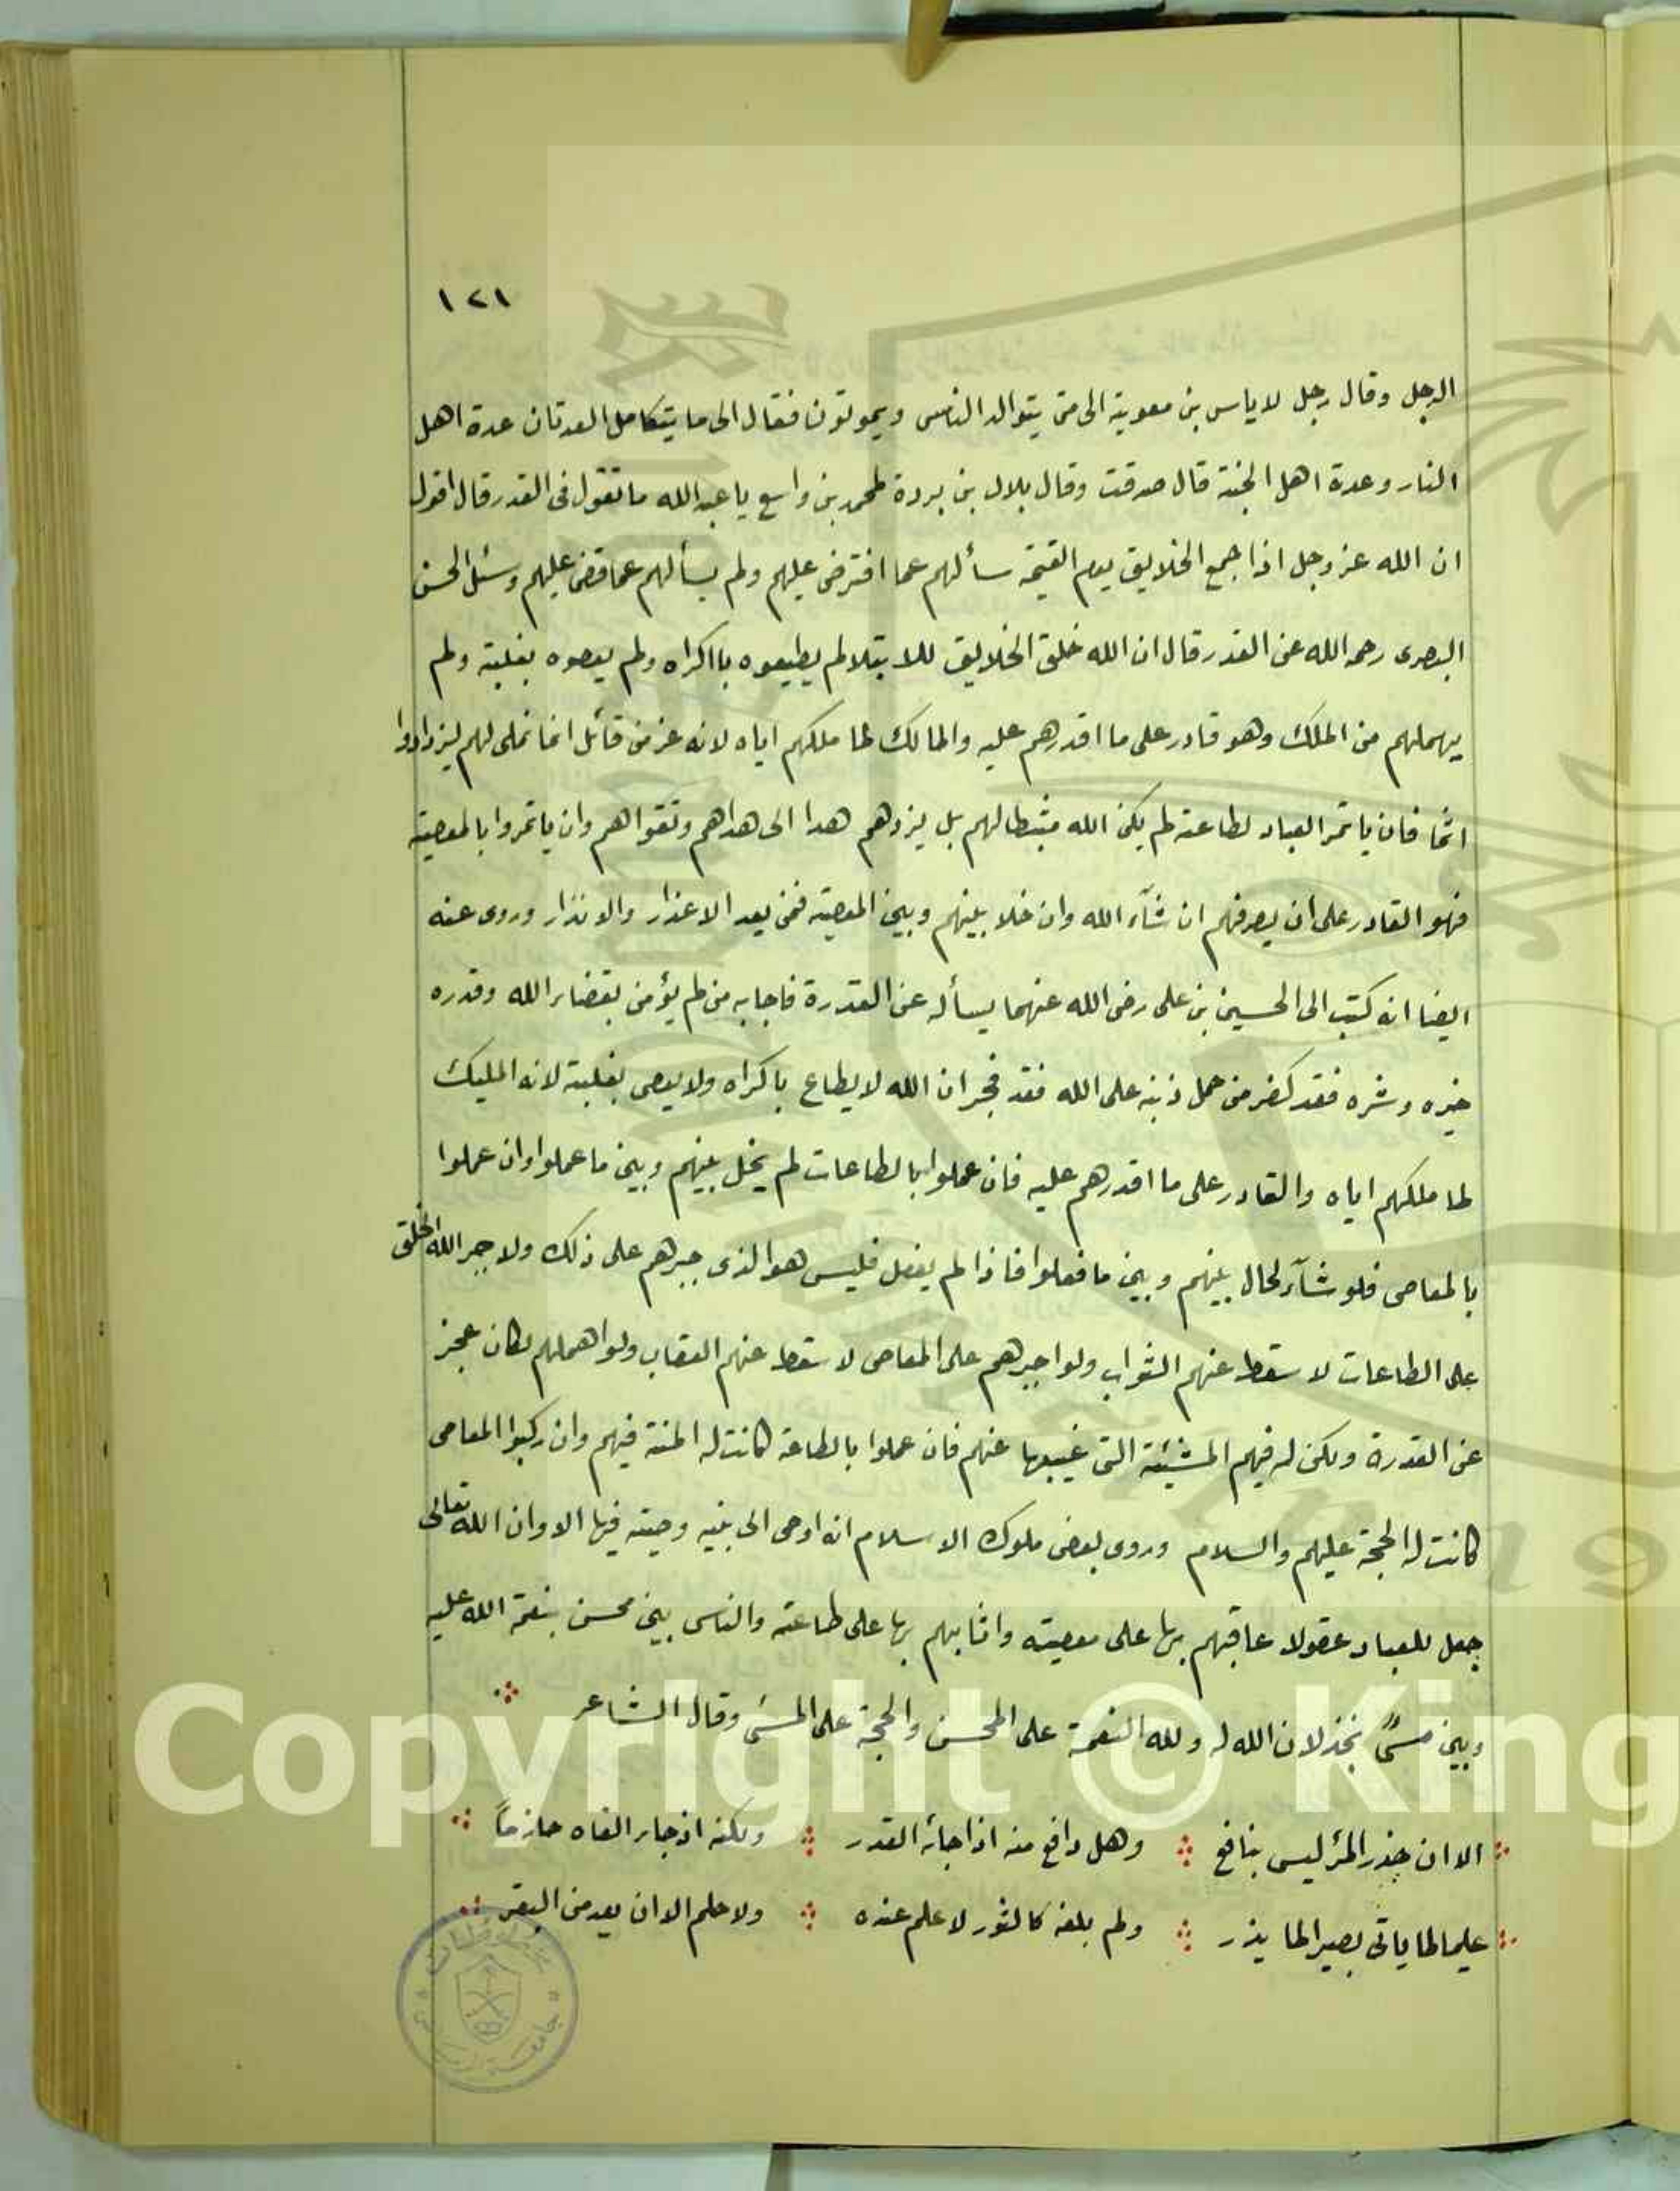 ١٢١
الرجل وقال رجل لاياس بن معوية الى متى يتوالد الناس ويموتون فقال الى ما يتكامل العدتان عدة اهل
النار وعدة اهل الجنة قال صدقت وقال بلال بن بردة لمحمد بن واسع يا عبد الله ما تقول فى القدر قال اقول
ان الله عز وجل اذا جمع الخلايق يوم القيمة سألهم عما افترض عليهم ولم يسألهم عما قضى عليهم وسئل الحسن
البصرى رحمه الله عن القدر قال ان الله خلق الخلايق للابتلا لم يطيعوه بااكراه ولم يعصوه بغلبة ولم
يهملهم من الملك وهو قادر على ما اقدرهم عليه والمالك لما ملكهم اياه لانه عز من قائل انما نملى لهم ليزدادوا
اثما فان ياتمر العباد لطاعته لم يكن الله مثبطا لهم بل يزدهم هدا الى هداهم وتقواهم وان ياتمروا بالمعصية
فهو القادر على ان يصرفهم ان شآء الله وان خلا بينهم وبين المعصية فمن بعد الاعذار والانذار وروى عنه
ايضا انه كتب الى الحسين بن على رضى الله عنهما يسأله عن القدرة فاجابه من لم يؤمن بقضاء الله وقدره
خيره وشره فقد كفر من حمل ذنبه على الله فقد فجر ان الله لا يطاع باكراه ولا يعصى بغلبة لانه المليك
لما ملكهم اياه والقادر على ما اقدرهم عليه فان عملوا بالطاعات لم يخل بينهم وبين ما عملوا وان عملوا
بالمعاصى فلو شآء لحال بينهم وبين ما فعلوا فاذا لم يفعل فليس هو الذى جبرهم على ذلك ولا جبر الله الخلق
على الطاعات لا سقط عنهم الثواب ولو اجبرهم على المعاصى لا سقط عنهم العقاب ولو اهملهم لكان عجز
عن القدرة ولكن له فيهم المشيئة التى غيبها عنهم فان عملوا بالطاعة كانت له المنة فيهم وان ركبوا المعاصى
كانت له الحجة عليهم والسلام وروى بعض ملوك الاسلام انه اوصى الى بنيه وصية فيها الا وان الله تعالى
جعل للعباد عقولا عاقبهم بها على معصيته واثابهم بها على طاعته والناس بين محسن بنعمة الله عليه
وبين مسئ بخذلان الله له ولله النعمة على المحسن والحجة على المسئ وقال الشاعر
الا ان حذر المرء ليس بنافع وهل دافع منه اذا جائه القدر ولكنه اذ جاء القاه حازماً
عليما لما ياتى بصيرا لما يذر ولم يلفه كالثور لا علم عنده ولا حلم الا ان يعد من البقر
Copyright © King